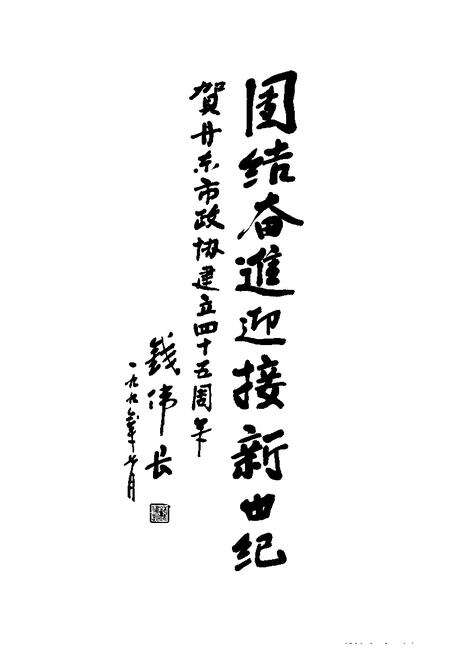 团结奋進迎接新世纪
賀丹东市政协建立四十五周年
錢伟长
一九九年月